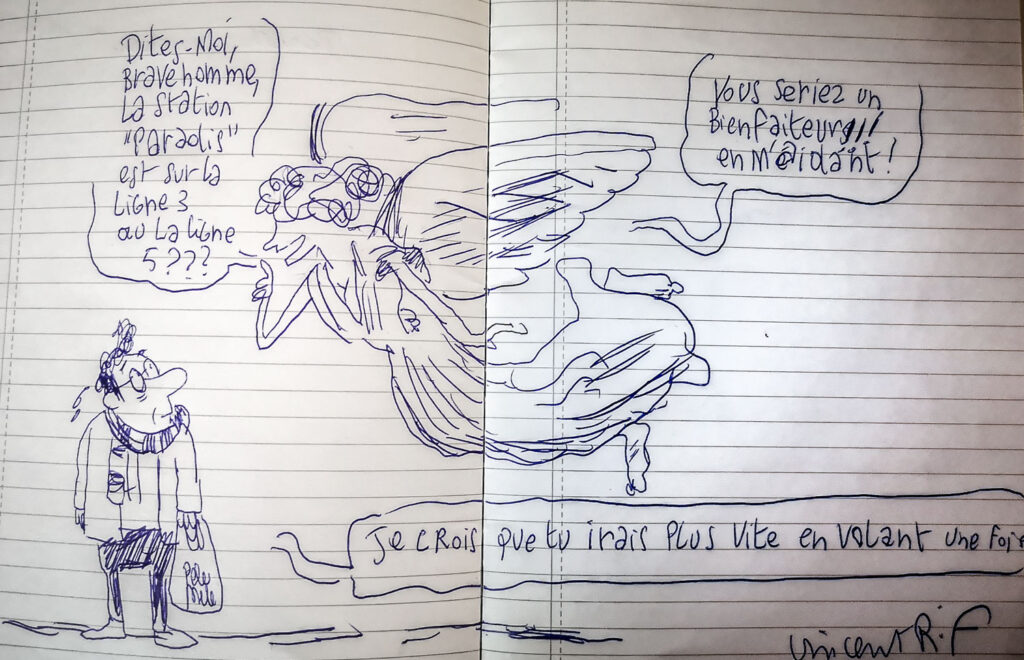 Dites-Moi,
Brave homme,
La station
"Paradis"
est sur la
Ligne 3
ou La ligne
5???
Vous seriez un
Bienfaiteur!!!
en M'aidant!
Je crois que tu irais Plus Vite en Volant une Foi
Pêle
Mêle
Vincent R.F